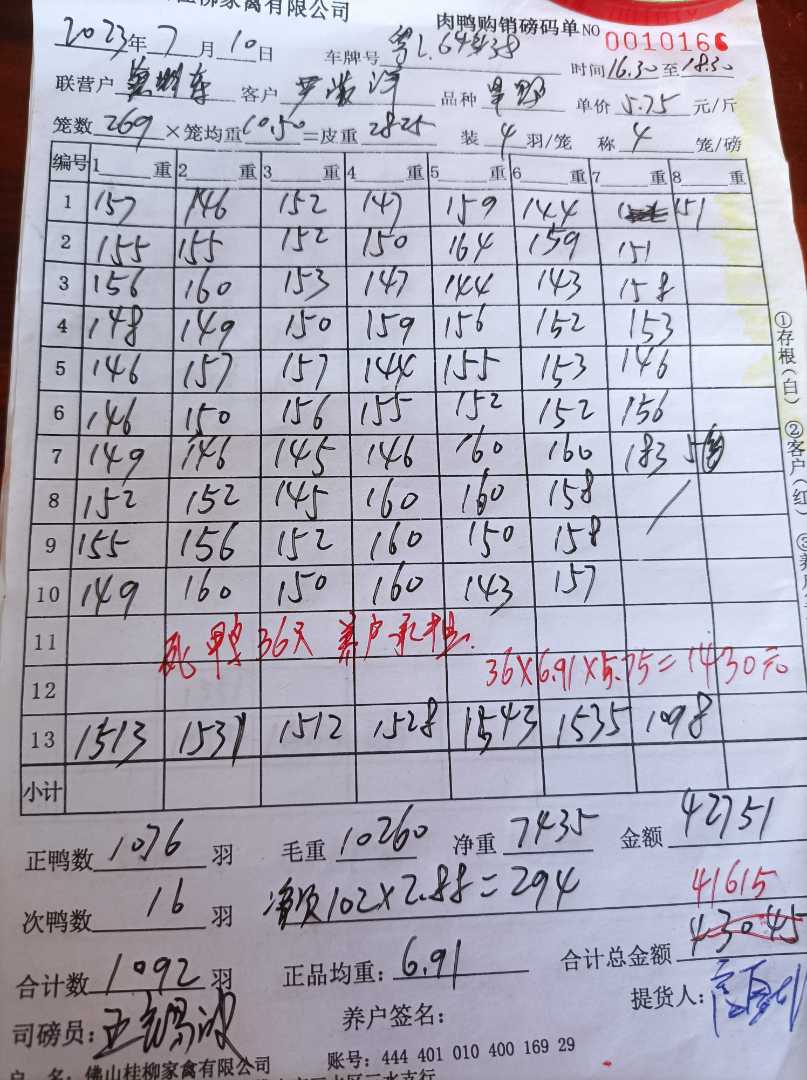 桂柳家禽有限公司
肉鸭购销磅码单 NO 0010166
2023年7月10日 车牌号 粤L.64438 时间16.30至18.30
联营户 客户 品种 单价5.75元/斤
笼数269×笼均重10.50=皮重2825 装4羽/笼 称4笼/磅
编号 1 重 2 重 3 重 4 重 5 重 6 重 7 重 8 重
1 157 146 152 147 159 144 151
2 155 155 152 150 164 159 151
3 156 160 153 147 144 143 158
4 148 149 150 159 156 152 153
5 146 157 157 144 155 153 146
6 146 150 156 155 152 152 156
7 149 146 145 146 160 160 183
8 152 152 145 160 160 158 /
9 155 156 152 160 150 158
10 149 160 150 160 143 157
11 死鸭36 养户承担.
12 36×6.91×5.75=1430元
13 1513 1531 1512 1528 1543 1535 1098
小计
正鸭数1076羽 毛重10260 净重7435 金额42751
次鸭数16羽 102×2.88=294 41615
合计数1092羽 正品均重:6.91 合计总金额43045
司磅员: 养户签名: 提货人:
户 名:佛山桂柳家禽有限公司 账号:444 401 010 400 169 29
①存根(白) ②客户(红) ③